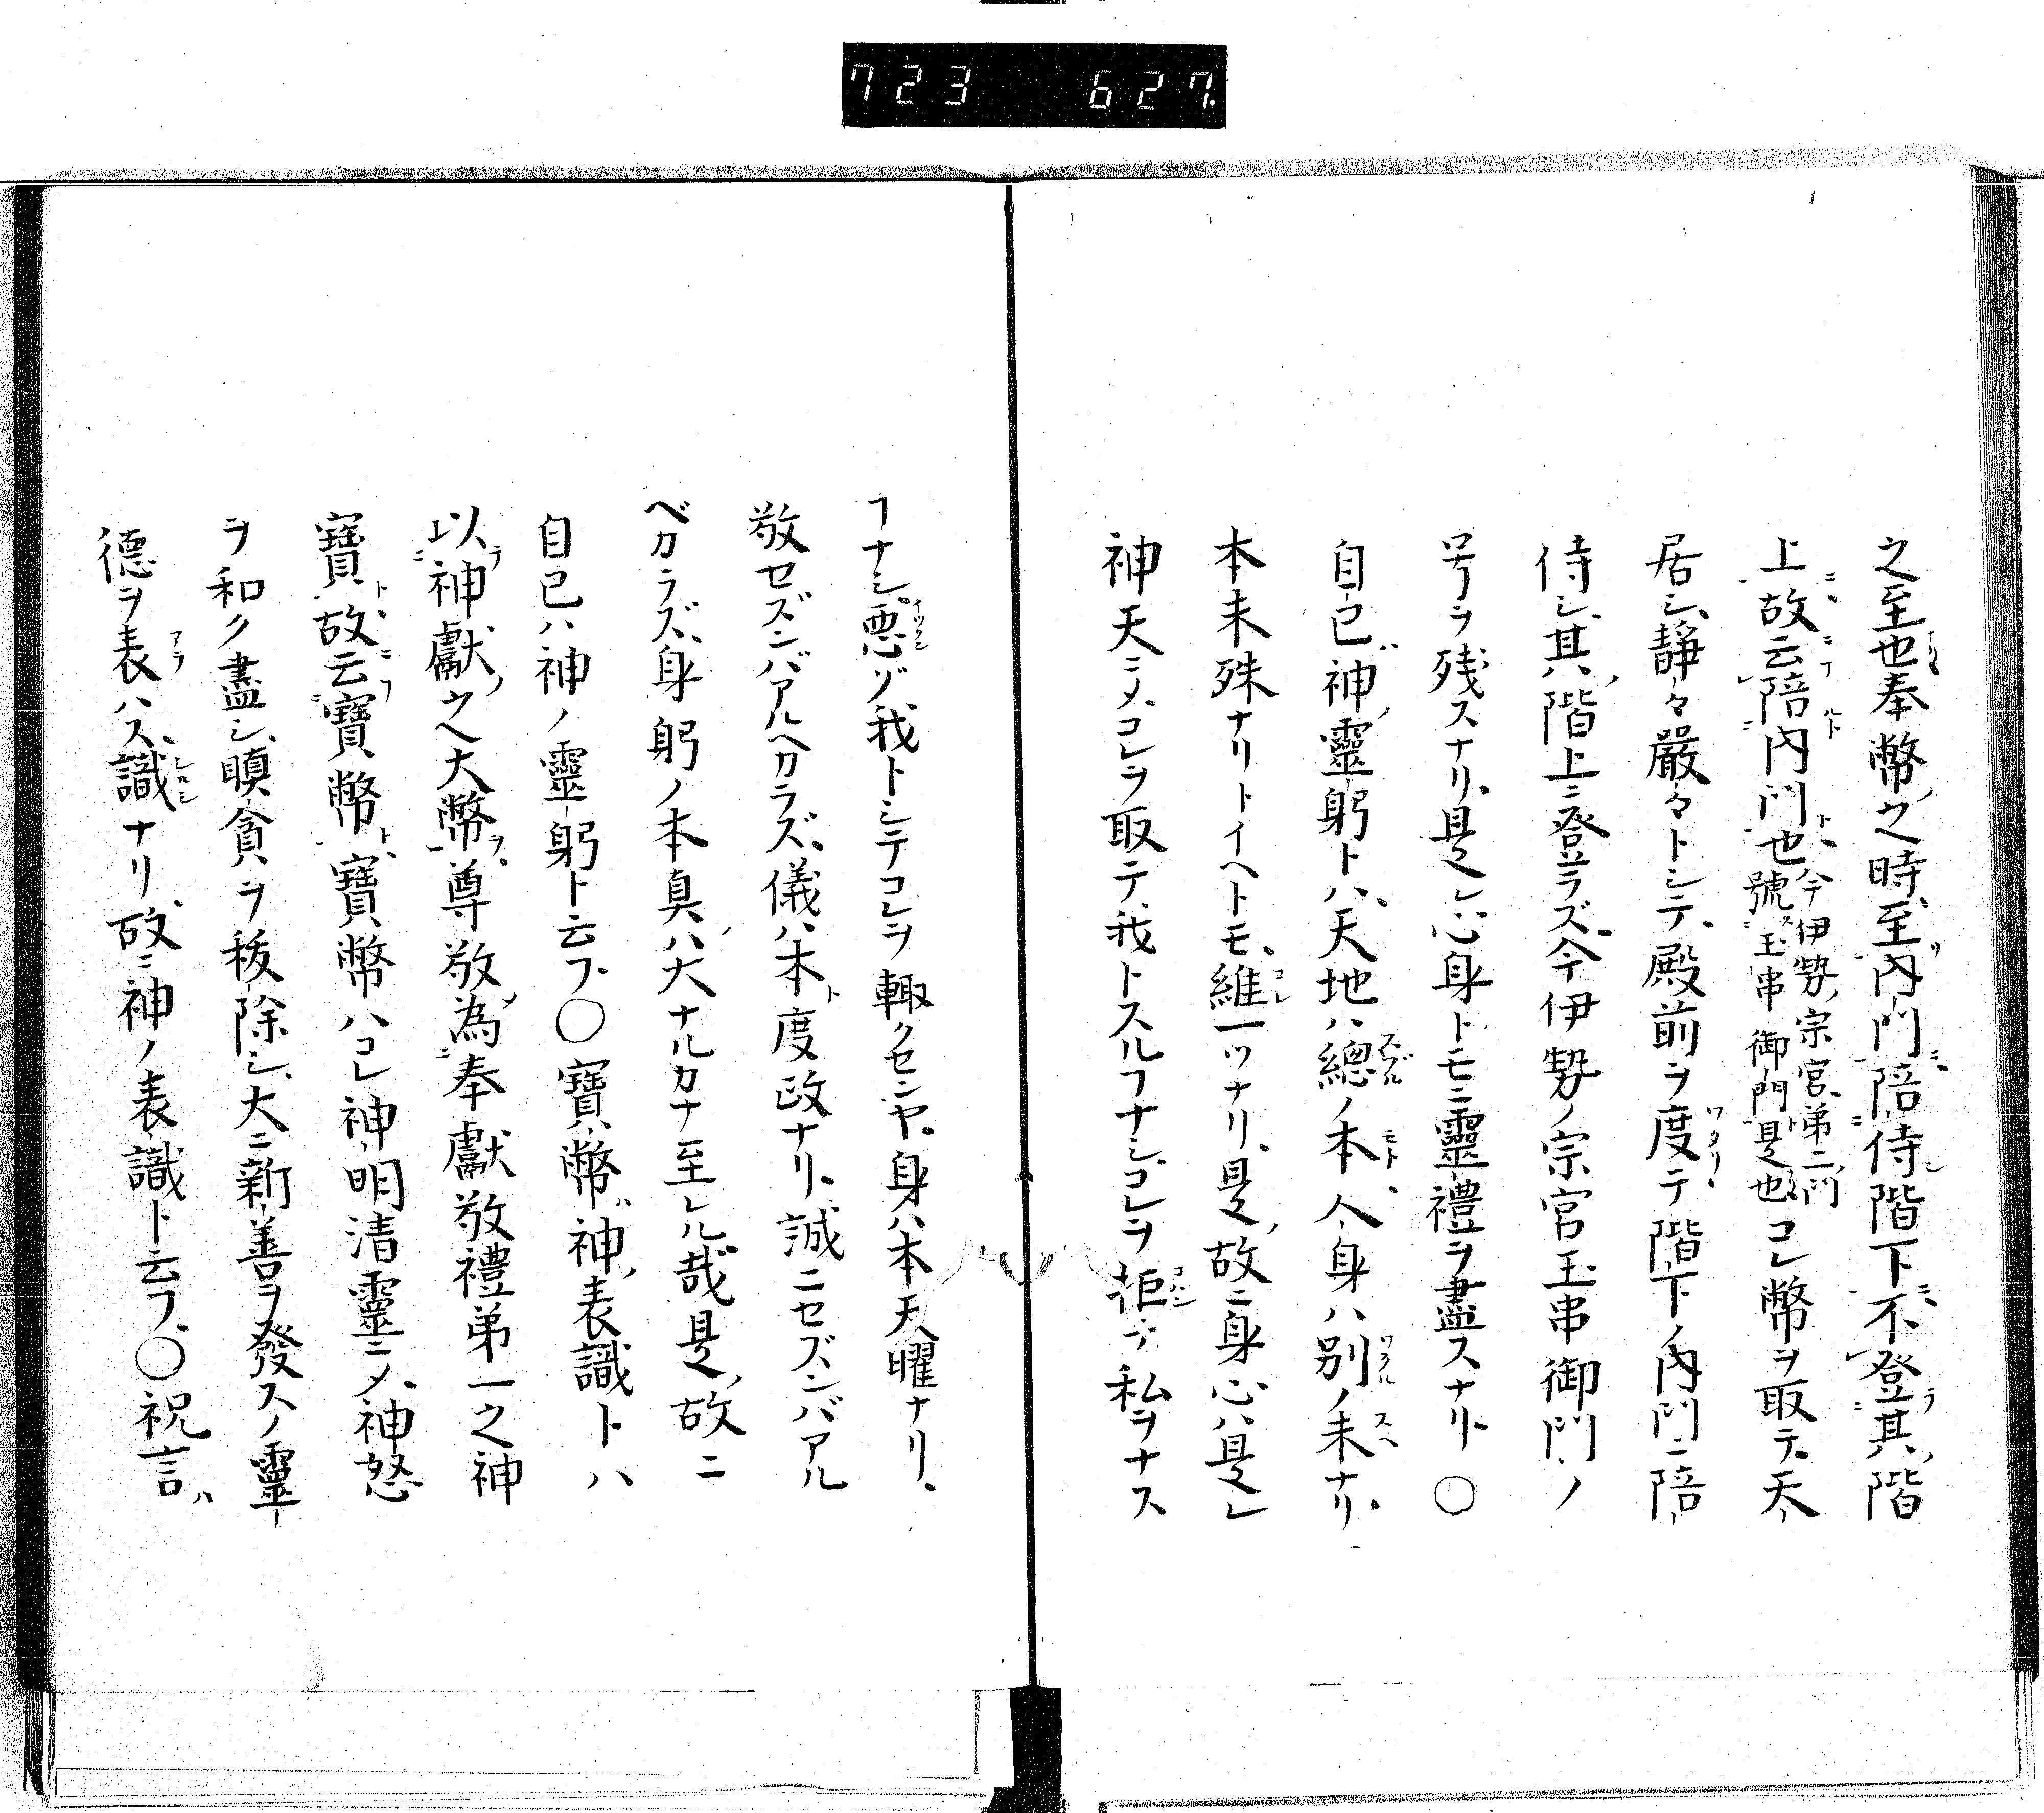 723 627
之至也奉幣之時至內門陪侍階下不登其階
上故云陪內門也今伊勢ノ宗宮第二門號玉串御門是也コレ幣ヲ取テ天
居シ靜々嚴々トシテ殿前ヲ度テ階下ノ內門ニ陪
侍シ其ノ階上ニ登ラズ今伊勢ノ宗宮玉串御門ノ
号ヲ残スナリ是レ心身トモニ靈禮ヲ盡スナリ○
自己神ノ靈躬トハ天地ハ總ノ本人身ハ別ノ末ナリ
本末殊ナリトイヘトモ維一ツナリ是ノ故ニ身心ハ是レ
神天ニメコレヲ取テ我トスルヿナシコレヲ拒テ私ヲナス
ヿナシ悪ゾ我トシテコレヲ輙クセンヤ身ハ本天曜ナリ
敬セズンバアルヘカラズ儀ハ本度政ナリ誠ニセズンバアル
ベカラズ身躬ノ本真ハ大ナルカナ至レル哉是ノ故ニ
自己ハ神ノ靈躬ト云フ○寶幣神ノ表識トハ
以神獻之大幣尊敬為奉獻敬禮第一之神
寶故云寶幣寶幣ハコレ神明清靈ニメ神怒
ヲ和ク盡シ瞋貪ヲ秡除シ大ニ新善ヲ發スノ靈
德ヲ表ハス識ナリ故ニ神ノ表識ト云フ○祝言ハ